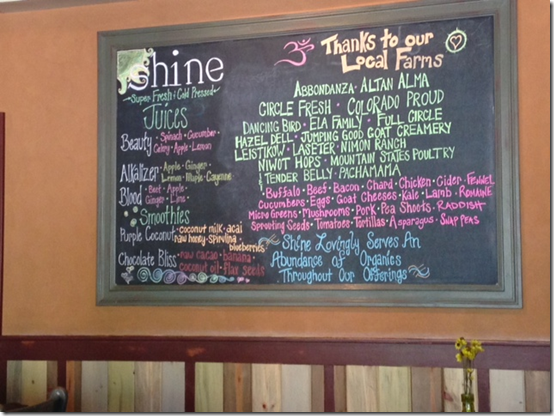 Shine
Super Fresh & Cold Pressed
Juices
Beauty • Spinach • Cucumber •
Celery • Apple • Lemon
Alkalizer • Apple • Ginger •
Lemon • Maple • Cayenne
Blood • Beet • Apple •
Ginger • Lime •
Smoothies
Purple Coconut • coconut milk • acai
raw honey • spirulina • blueberries
Chocolate Bliss • raw cacao • banana •
coconut oil • flax seeds
ॐ Thanks to our
Local Farms
Abbondanza • Altan Alma
Circle Fresh • Colorado Proud
Dancing Bird • Ela Family • Full Circle
Hazel Dell • Jumping Good Goat Creamery
Leistikow • Laseter • Nimon Ranch
Niwot Hops • Mountain States Poultry
Tender Belly • Pachamama
• Buffalo • Beef • Bacon • Chard • Chicken • Cider • Fennel
Cucumbers • Eggs • Goat Cheeses • Kale • Lamb • Romaine
Micro Greens • Mushrooms • Pork • Pea Shoots • Raddish
Sprouting Seeds • Tomatoes • Tortillas • Asparagus • Snap Peas
Shine Lovingly Serves An
Abundance of Organics
Throughout Our Offerings